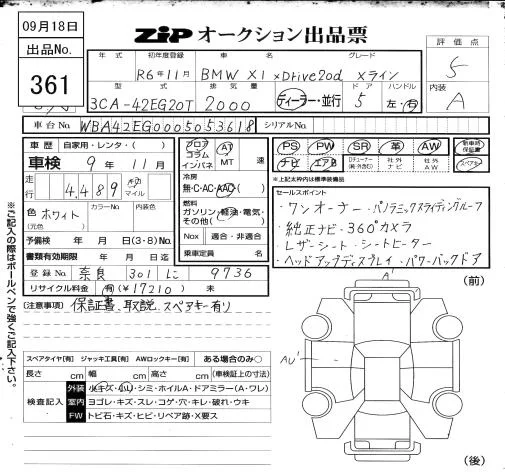 09月18日
出品No.
361
ZiP オークション出品票
評価点
5
内装
A
年式 初年度登録 車名 グレード
R6年11月 BMW X1 xDrive20d Xライン
型式 排気量 ドア ハンドル
3CA-42EG20T 2000 ディーラー・並行 5 左・右
車台No. WBA42EG0005053618 シリアルNo.
車歴 自家用・レンタ・( )
車検 9年 11月
走行 4,489 km マイル
色 ホワイト (元色) カラーNo. 内装色
予備検 年 月 日(3・8)No.
書類有効期限 年 月 日迄
登録No. 奈良 301 に 9736
リサイクル料金 有(¥17210) 未
フロア コラム インパネ
AT MT 速
冷房
無・C・AC・AAC( )
燃料
ガソリン・軽油・電気・その他( )
Nox 適合・非適合
乗車定員 名
PS PW SR 革 AW 新車時保証書
ナビ エアB Dチューナー(純・外含む) 社外ナビ 社外AW スペアキー
*上記太枠内は標準装備品
セールスポイント
・ワンオーナー・パノラミックスライディングルーフ
・純正ナビ・360°カメラ
・レザーシート・シートヒーター
・ヘッドアップディスプレイ・パワーバックドア
(注意事項) 保証書、取説、スペアキー有り
※ご記入の際はボールペンで強くご記入下さい。
スペアタイヤ[有] ジャッキ工具[有] AWロックキー[有] ある場合のみ○
長さ cm 幅 cm 高さ cm (車検証上の寸法)
検査記入
外装 小キズ・凹・シミ・ホイルA・ドアミラー(A・ワレ)
室内 ヨゴレ・キズ・スレ・コゲ・穴・キレ・破れ・ウキ
FW トビ石・キズ・ヒビ・リペア跡・X要ス
A'
(前)
AU'
(後)